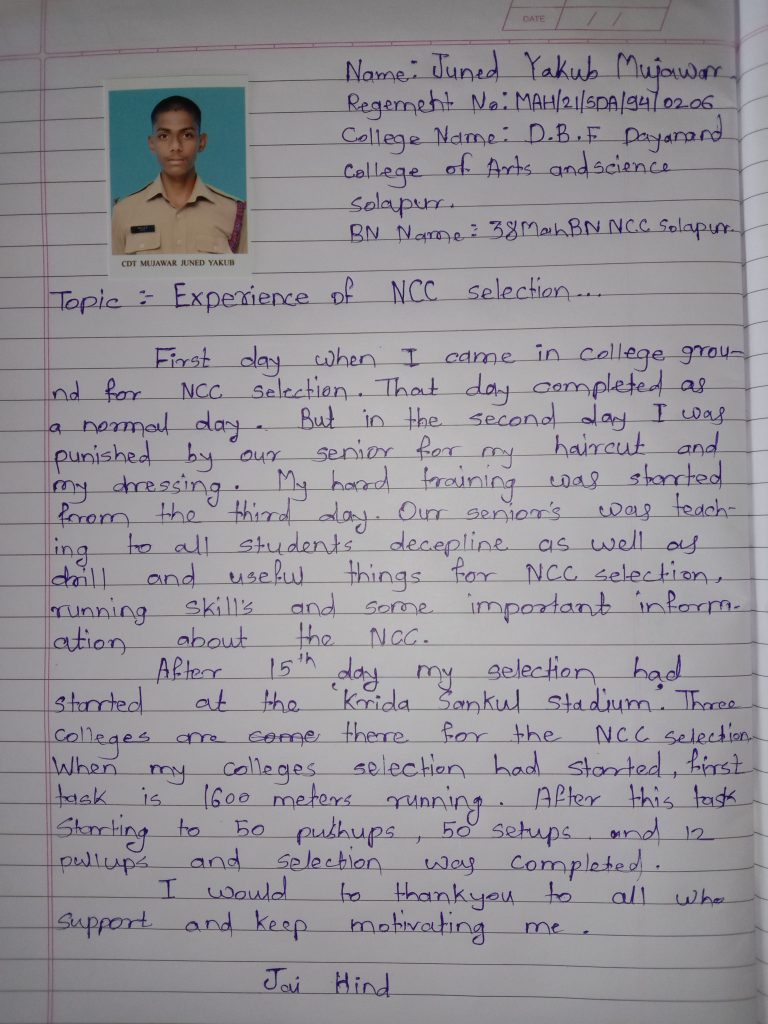 DATE / /
Name: Juned Yakub Mujawar
Regement No: MAH/21/SDA/94/0206
College Name: D.B.F Dayanand
College of Arts and science
Solapur.
BN Name: 38 Mah BN NCC Solapur.
CDT MUJAWAR JUNED YAKUB
Topic :- Experience of NCC selection...
First day when I came in college grou-
nd for NCC selection. That day completed as
a normal day. But in the second day I was
punished by our senior for my haircut and
my dressing. My hard training was started
from the third day. Our senior's was teach-
ing to all students decepline as well as
drill and useful things for NCC selection,
running skill's and some important inform-
ation about the NCC.
After 15th day my selection had
started at the 'Krida Sankul Stadium'. Three
colleges are come there for the NCC selection
When my colleges selection had started, first
task is 1600 meters running. After this task
Starting to 50 puthups, 50 setups and 12
pullups and selection was completed.
I would to thankyou to all who
support and keep motivating me.
Jai Hind